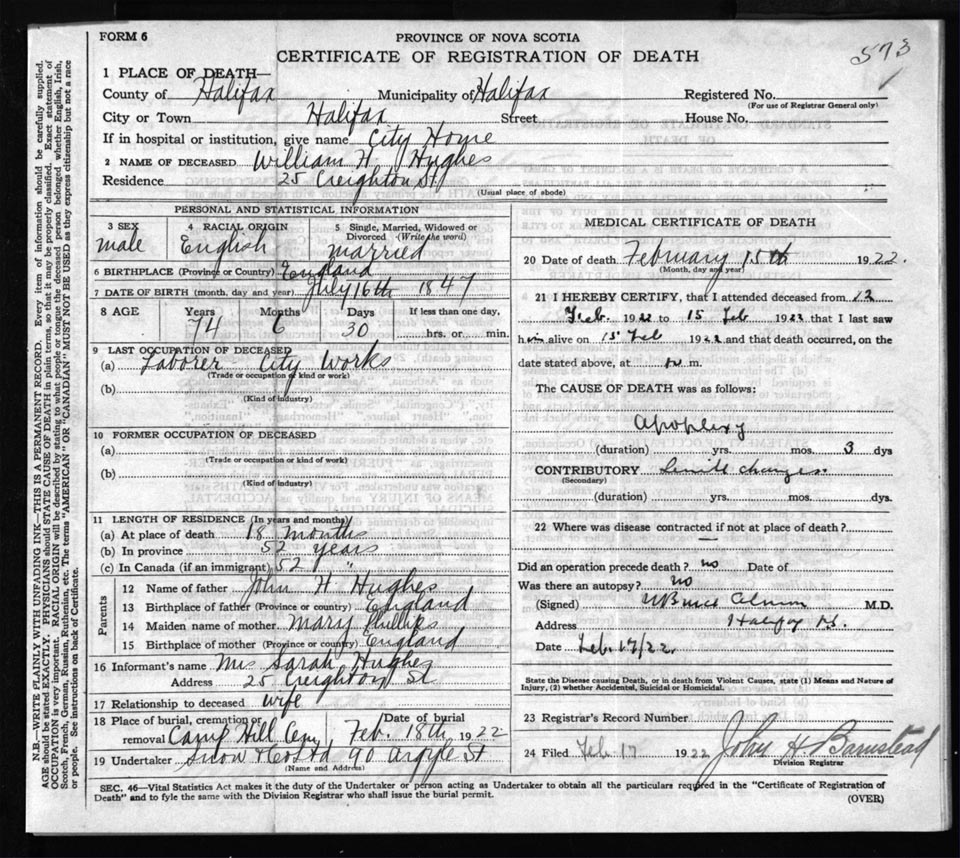 FORM 6
PROVINCE OF NOVA SCOTIA
CERTIFICATE OF REGISTRATION OF DEATH
573
1 PLACE OF DEATH—
County of Halifax Municipality of Halifax Registered No.
(For use of Registrar General only)
City or Town Halifax Street House No.
If in hospital or institution, give name City Home
2 NAME OF DECEASED William H. Hughes
Residence 25 Creighton St.
(Usual place of abode)
PERSONAL AND STATISTICAL INFORMATION
3 SEX 4 RACIAL ORIGIN 5 Single, Married, Widowed or Divorced (Write the word)
male English married
6 BIRTHPLACE (Province or Country) England
7 DATE OF BIRTH (month, day and year) July 16th 1847
8 AGE Years Months Days If less than one day,
74 6 30 hrs. or min.
9 LAST OCCUPATION OF DECEASED
(a) Laborer City Works
(Trade or occupation or kind of work)
(b)
(Kind of industry)
10 FORMER OCCUPATION OF DECEASED
(a)
(Trade or occupation or kind of work)
(b)
(Kind of industry)
11 LENGTH OF RESIDENCE (In years and months)
(a) At place of death 18 months
(b) In province 52 years
(c) In Canada (if an immigrant) 52 "
Parents
12 Name of father John H Hughes
13 Birthplace of father (Province or country) England
14 Maiden name of mother Mary Phillips
15 Birthplace of mother (Province or country) England
16 Informant's name Mrs Sarah Hughes
Address 25 Creighton St
17 Relationship to deceased wife
18 Place of burial, cremation or removal Camp Hill Cem, Date of burial Feb. 18th 1922
19 Undertaker Snow & Co Ltd 90 Argyle St
(Name and Address)
MEDICAL CERTIFICATE OF DEATH
20 Date of death February 15th 1922.
(Month, day and year)
21 I HEREBY CERTIFY, that I attended deceased from 12
Feb. 1922 to 15 Feb 1922 that I last saw
him alive on 15 Feb 1922 and that death occurred, on the
date stated above, at m.
The CAUSE OF DEATH was as follows:
Apoplexy
(duration) yrs. mos. 3 dys
CONTRIBUTORY Senile changes.
(Secondary)
(duration) yrs. mos. dys.
22 Where was disease contracted if not at place of death? —
Did an operation precede death? no Date of
Was there an autopsy? no
(Signed) M.D.
Address Halifax N.S.
Date Feb. 17/22.
State the Disease causing Death, or in death from Violent Causes, state (1) Means and Nature of
Injury, (2) whether Accidental, Suicidal or Homicidal.
23 Registrar's Record Number
24 Filed Feb 17 1922 John H. Barnstead
Division Registrar
SEC. 46—Vital Statistics Act makes it the duty of the Undertaker or person acting as Undertaker to obtain all the particulars required in the "Certificate of Registration of
Death" and to fyle the same with the Division Registrar who shall issue the burial permit.
(OVER)
N.B.—WRITE PLAINLY WITH UNFADING INK—THIS IS A PERMANENT RECORD. Every item of information should be carefully supplied.
AGE should be stated EXACTLY. PHYSICIANS should STATE CAUSE OF DEATH in plain terms, so that it may be properly classified. Exact statement of
OCCUPATION is very important. RACIAL ORIGIN will be described by stating to what people or tongue the deceased person belonged whether English, Irish,
Scotch, French, German, Russian, Ruthenian, etc. The terms "AMERICAN" OR "CANADIAN" MUST NOT BE USED as they express citizenship but not a race
or people. See instructions on back of Certificate.